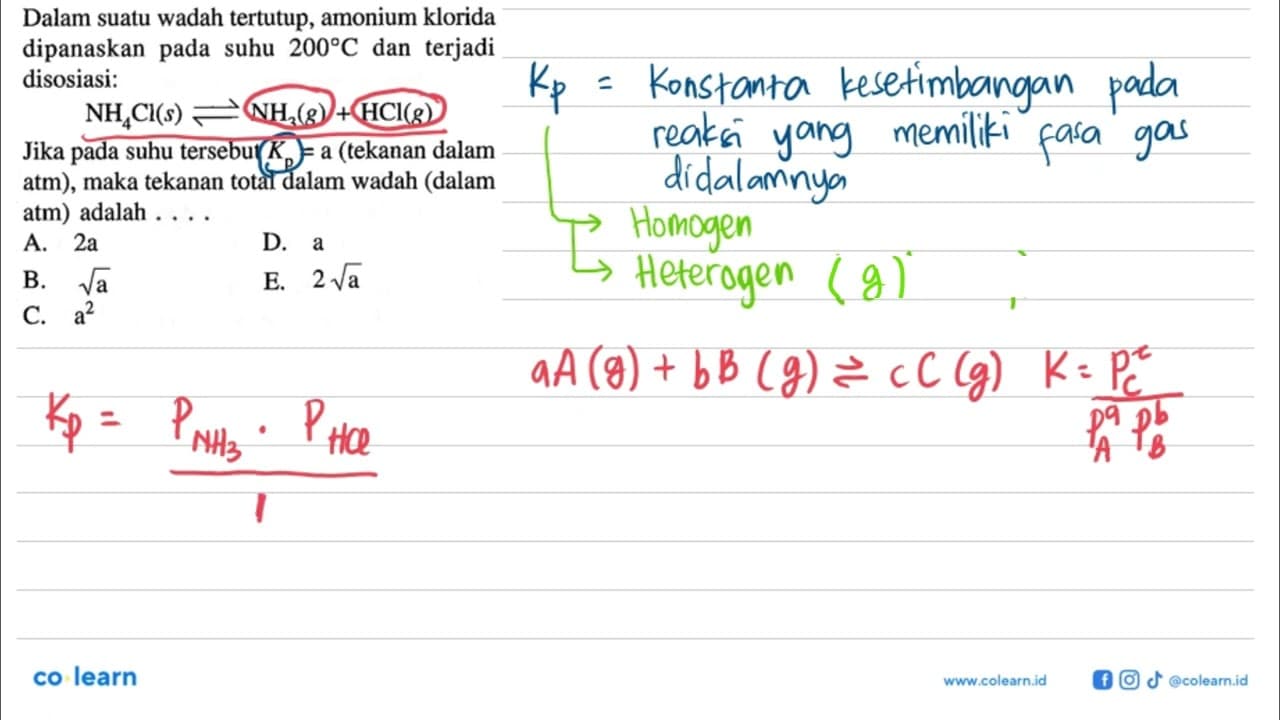 Dalam suatu wadah tertutup, amonium klorida
dipanaskan pada suhu 200°C dan terjadi
disosiasi:
NH₄Cl(s) ⇌ NH₃(g) + HCl(g)
Jika pada suhu tersebut Kₚ = a (tekanan dalam
atm), maka tekanan total dalam wadah (dalam
atm) adalah . . . .
A. 2a D. a
B. √a E. 2√a
C. a²
Kp = Konstanta kesetimbangan pada
reaksi yang memiliki fasa gas
didalamnya
Homogen
Heterogen (g)
,
aA (g) + bB (g) ⇌ cC (g) K = P_C^c
P_A^a P_B^b
Kp = P_NH₃ . P_HCl
1
co learn
www.colearn.id
@colearn.id